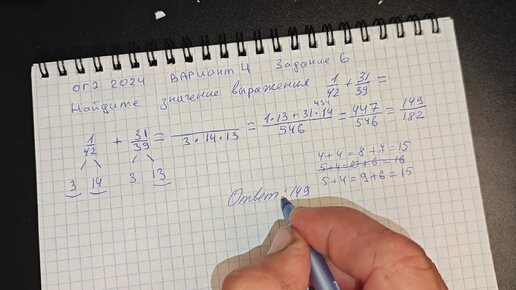 ОГЭ 2024 ВАРИАНТ 4 Задание 6
Найдите значение выражения 1/42 + 31/39 =
1/42 + 31/39 = /3·14·13 = 1·13+31·14/546 = 447/546 = 149/182
434
3 14 3 13
4+4=8+7=15
5+4=10+6=16
5+4=9+6=15
Ответ: 149